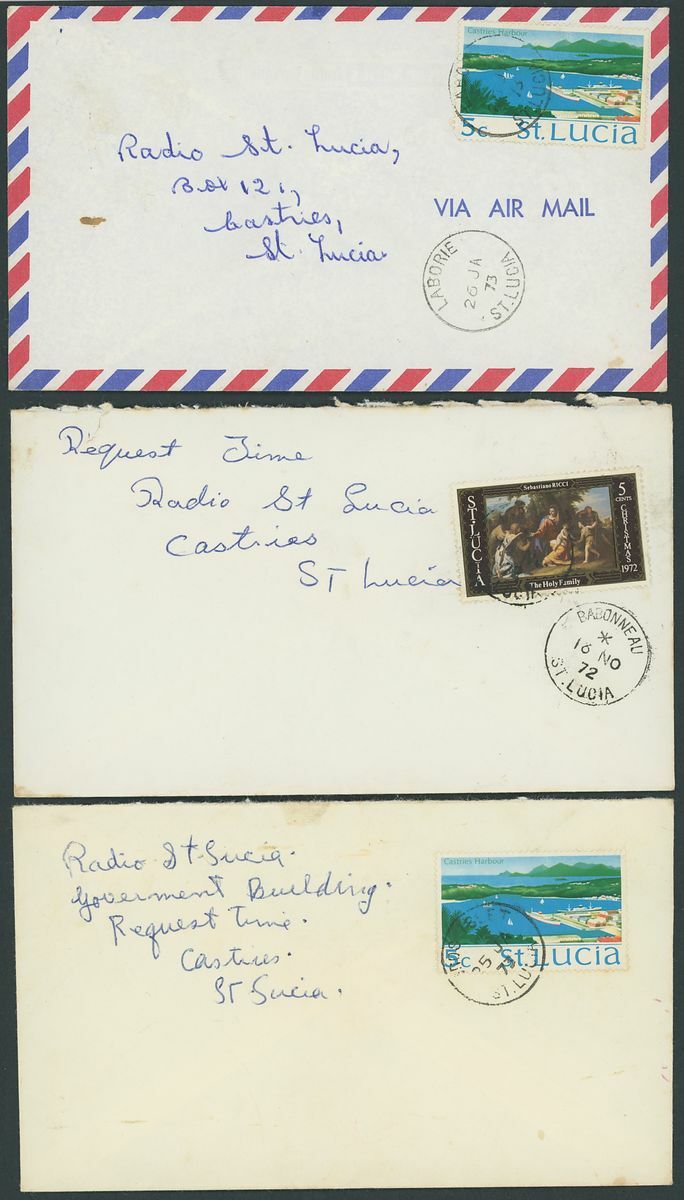 Castries Harbour
5c St. Lucia
Radio St. Lucia,
Box 121,
Castries,
St. Lucia.
VIA AIR MAIL
LABORIE
26 JA
73
ST. LUCIA
Request Time
Radio St Lucia
Castries
ST Lucia
Sebastiano RICCI
ST. LUCIA
5
CENTS
CHRISTMAS
1972
The Holy Family
BABONNEAU
*
16 NO
72
ST. LUCIA
Radio St. Lucia.
Goverment Building.
Request Time.
Castries.
St Lucia.
Castries Harbour
5c St. Lucia
25 JA
73
ST. LU